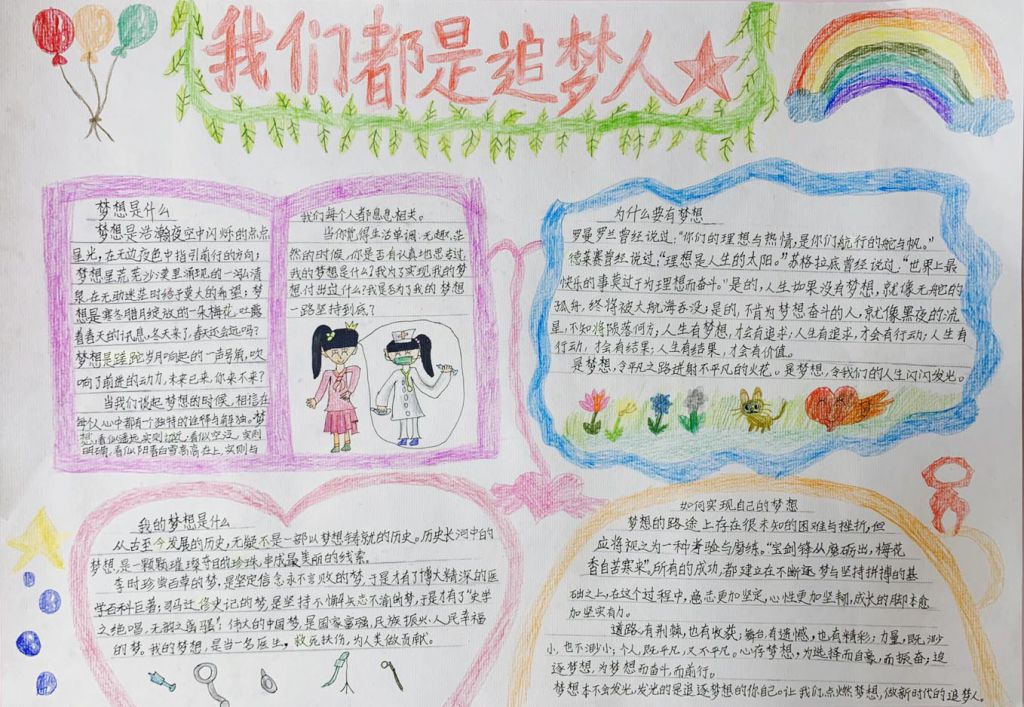 我们都是追梦人
梦想是什么
梦想是浩瀚夜空中闪烁的点点
星光,在无边夜色中指引前行的方向;
梦想是荒芜沙漠里涌现的一泓清
泉,在无助迷茫时给予莫大的希望;梦
想是寒冬腊月绽放的一朵梅花,吐露
着春天的讯息,冬天来了,春天还会远吗?
梦想是蹉跎岁月响起的一声号角,吹
响了前进的动力,未来已来,你来不来?
当我们谈起梦想的时候,相信在
每个人心中都有个独特的诠释与解读。梦
想,看似遥远,实则过近,看似空洞,实则
明确,看似阳春白雪高高在上,实则与
我们每个人都息息相关。
当你觉得生活单调、无趣、茫
然的时候,你是否有认真地思考过,
我的梦想是什么?我为了实现我的梦
想付出过什么?我是否为了我的梦想
一路坚持到底?
为什么要有梦想
罗曼罗兰曾经说过,“你们的理想与热情,是你们航行的舵与帆。”
德莱赛曾经说过,“理想是人生的太阳。”苏格拉底曾经说过,“世界上最
快乐的事莫过于为理想而奋斗。”是的,人生如果没有梦想,就像无舵的
孤舟,终将被大航海吞没;是的,不肯为梦想奋斗的人,就像黑夜的流
星,不知将陨落何方;人生有梦想,才会有追求;人生有追求,才会有行动;人生有
行动,才会有结果;人生有结果,才会有价值。
是梦想,令平凡之路迸射不平凡的火花。是梦想,令我们的人生闪闪发光。
我的梦想是什么
从古至今发展的历史,无疑不是一部以梦想铸就的历史。历史长河中的
梦想,是一颗颗璀璨夺目的珍珠,串成最美丽的线索。
李时珍尝百草的梦,是坚定信念永不言败的梦,于是才有了博大精深的医
学百科巨著;司马迁修史记的梦,是坚持不懈矢志不渝的梦,于是才有了“史学
之绝唱,无韵之离骚”!伟大的中国梦,是国家富强、民族振兴、人民幸福
的梦。我的梦想,是当一名医生,救死扶伤,为人类做贡献。
如何实现自己的梦想
梦想的路途上存在很未知的困难与挫折,但
应将视之为一种考验与磨练。“宝剑锋从磨砺出,梅花
香自苦寒来”。所有的成功,都建立在不断逐梦与坚持拼搏的基
础之上,在这个过程中,意志更加坚定,心性更加坚韧,成长的脚本愈
加坚实有力。
道路,有荆棘,也有收获;舞台,有遗憾,也有精彩;力量,既渺
小,也不渺小;个人,既平凡,又不平凡。心存梦想,为选择而自豪,而振奋;追
逐梦想,为梦想而奋斗,而前行。
梦想本不会发光,发光的是追逐梦想的你自己。让我们,点燃梦想,做新时代的追梦人。